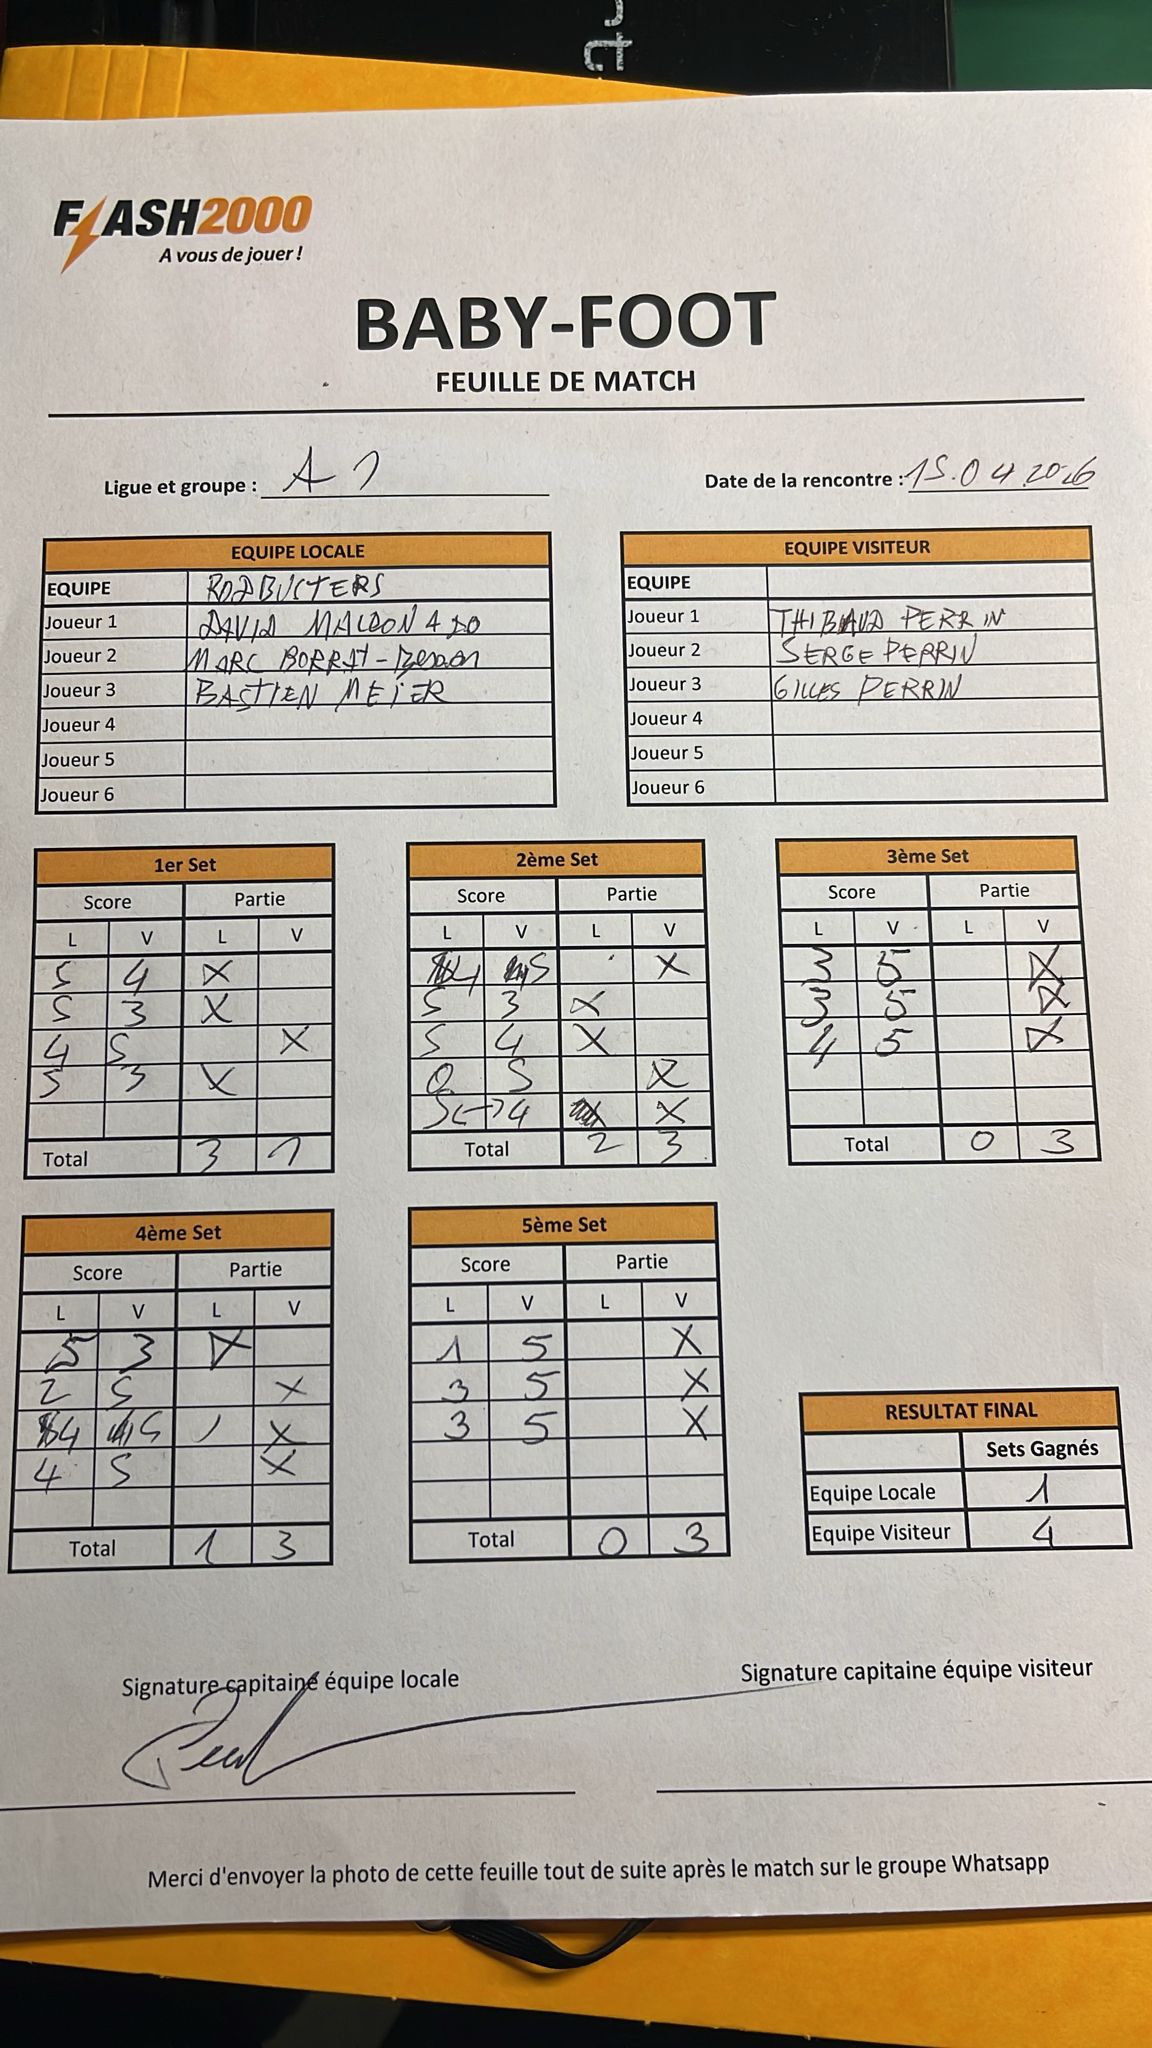 FLASH2000
A vous de jouer !
BABY-FOOT
FEUILLE DE MATCH
Ligue et groupe : A 1
Date de la rencontre : 15.04.2026
EQUIPE LOCALE
EQUIPE RODBUSTERS
Joueur 1 DAVID MALDONADO
Joueur 2 MARC BORRAT-
Joueur 3 BASTIEN MEIER
Joueur 4
Joueur 5
Joueur 6
EQUIPE VISITEUR
EQUIPE
Joueur 1 THIBAUD PERRIN
Joueur 2 SERGE PERRIN
Joueur 3 GILLES PERRIN
Joueur 4
Joueur 5
Joueur 6
1er Set
Score Partie
L V L V
5 4 X
5 3 X
4 5 X
5 3 X
Total 3 1
2ème Set
Score Partie
L V L V
4 5 X
5 3 X
5 4 X
0 5 X
5 ↔ 4 X
Total 2 3
3ème Set
Score Partie
L V L V
3 5 X
3 5 X
4 5 X
Total 0 3
4ème Set
Score Partie
L V L V
5 3 X
2 5 X
4 5 X
4 5 X
Total 1 3
5ème Set
Score Partie
L V L V
1 5 X
3 5 X
3 5 X
Total 0 3
RESULTAT FINAL
Sets Gagnés
Equipe Locale 1
Equipe Visiteur 4
Signature capitaine équipe locale
Signature capitaine équipe visiteur
Merci d'envoyer la photo de cette feuille tout de suite après le match sur le groupe Whatsapp